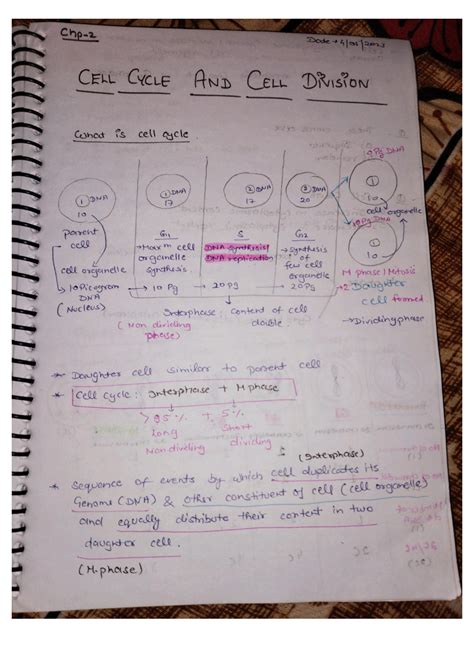 Chp-2
CELL CYCLE AND CELL DIVISION
What is cell cycle.
1 DNA
10
1 DNA
17
2 DNA
17
2 DNA
20
DNA
1
10
cell organelle
10 Pg DNA
1
10
parent cell
cell organelle
10 Picogram DNA
(Nucleus)
G1
cell organelle synthesis
10 Pg
S
DNA synthesis/
DNA replication
20 Pg
G12
→ synthesis of few cell organelle
20 Pg
M phase/Mitosis
→ 2 Daughter cell formed
→ Dividing phase
Interphase: content of cell double.
(Non dividing phase)
* Daughter cell similar to parent cell
* Cell cycle: Interphase + M phase
> 95 % + 5 %
Long short
Non dividing
(Interphase)
* Sequence of events by which cell duplicates its
Genome (DNA) & other constituent of cell (cell organelle)
and equally distribute their content in two
daughter cell.
(M.phase)